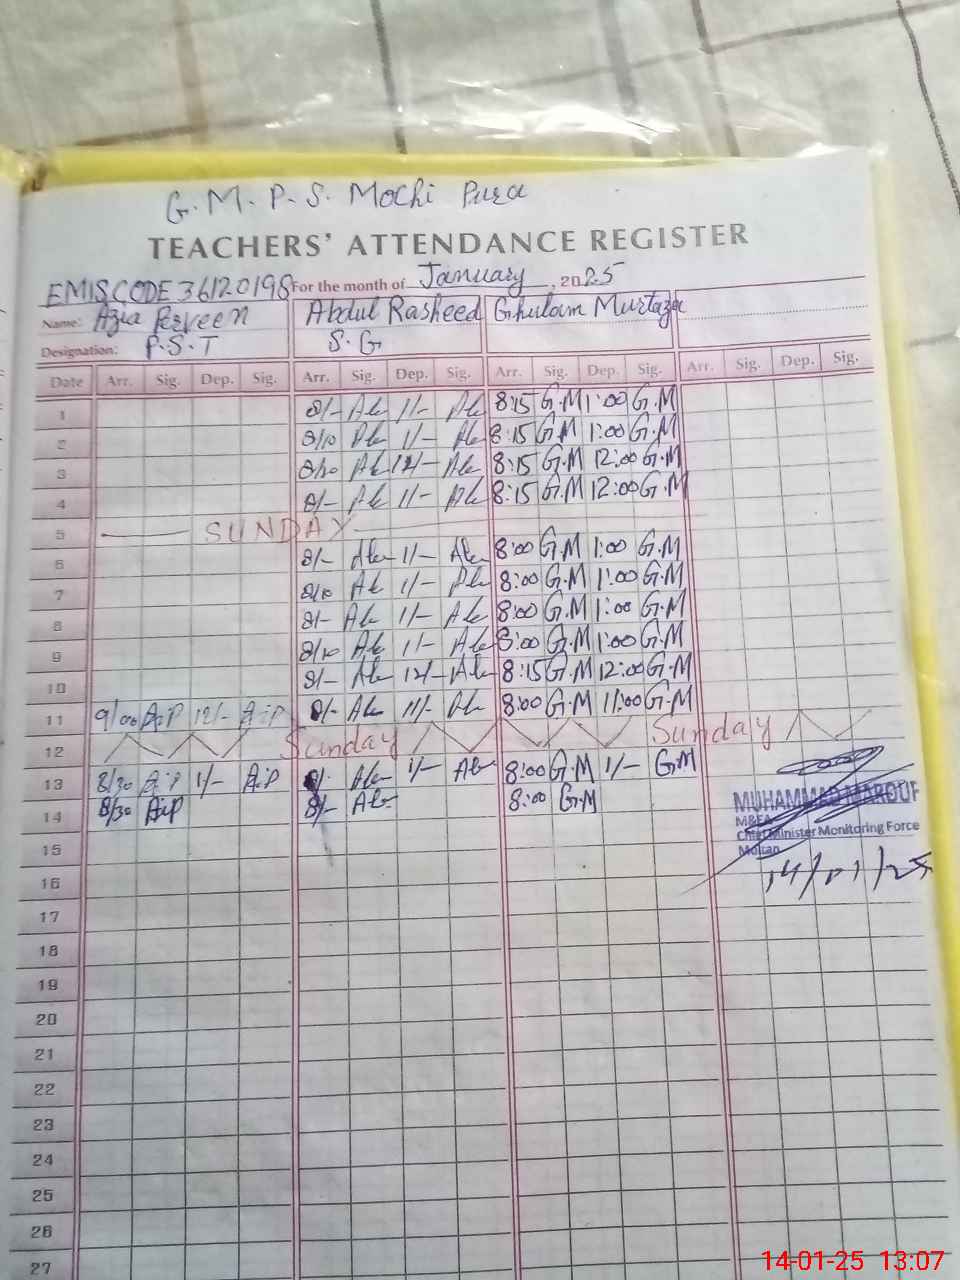 G.M.P.S. Mochi Pura
TEACHERS' ATTENDANCE REGISTER
EMIS CODE 36120198 For the month of January, 2025
Name: Perveen Abdul Rasheed Ghulam Murtaza
Designation: P.S.T S.G
Date Arr. Sig. Dep. Sig. Arr. Sig. Dep. Sig. Arr. Sig. Dep. Sig. Arr. Sig. Dep. Sig.
1 8/- 1/- 8:15 G.M 1:00 G.M
2 8/10 1/- 8:15 G.M 1:00 G.M
3 12/- 8:15 G.M 12:00 G.M
4 8/- 1/- 8:15 G.M 12:00 G.M
5 SUNDAY
6 8/- 1/- 8:00 G.M 1:00 G.M
7 8/10 1/- 8:00 G.M 1:00 G.M
8 8/- 1/- 8:00 G.M 1:00 G.M
9 8/10 1/- 8:00 G.M 1:00 G.M
10 8/- 12/- 8:15 G.M 12:00 G.M
11 9/00 12/- 8/- 11/- 8:00 G.M 11:00 G.M
12 Sunday Sunday
13 8/30 1/- 1/- 8:00 G.M 1/- G.M
14 8/30 8/- 8:00 G.M
MUHAMMAD MAROOF
MBEA
Chief Minister Monitoring Force
Multan
14/01/25
15
16
17
18
19
20
21
22
23
24
25
26
27
14-01-25 13:07